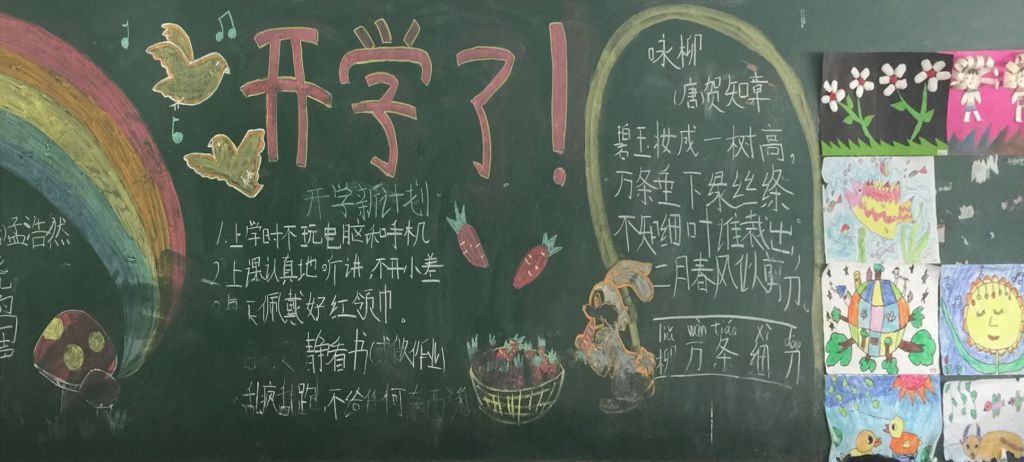 孟浩然
声
开学了!
开学新计划
1.上学时不玩电脑和手机
2.上课认真地听讲,不开小差
佩戴好红领巾。
静看书(或做作业)
不给任何
咏柳
唐贺知章
碧玉妆成一树高,
万条垂下绿丝绦
不知细叶谁裁出,
二月春风似剪刀
liǔ wàn tiáo xì dāo
柳万条细刀